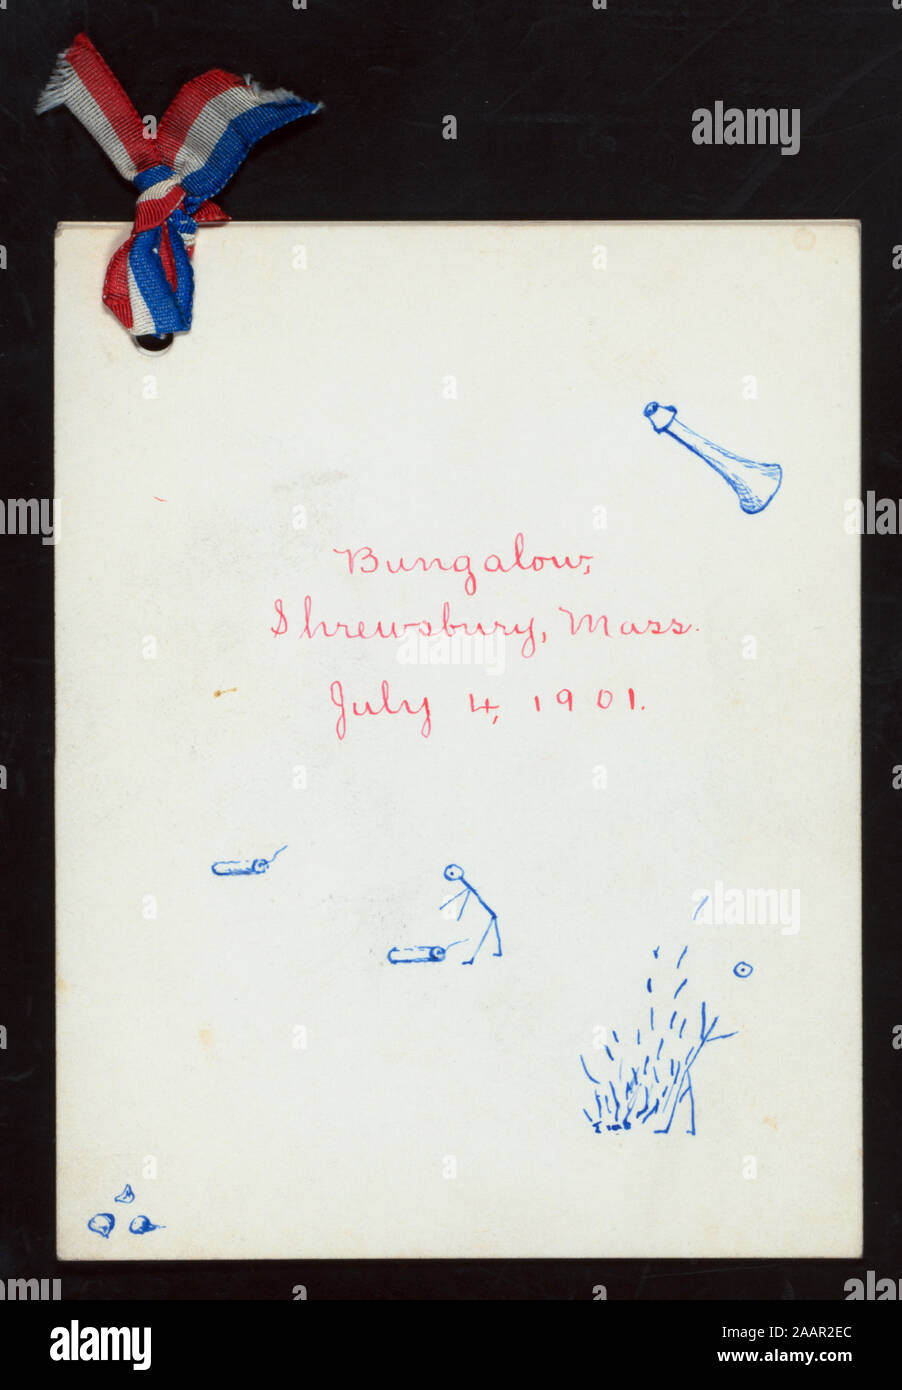 alamy
Bungalow,
Shrewsbury, Mass.
July 4, 1901.
alamy
alamy
alamy
Image ID: 2AAR2EC
www.alamy.com